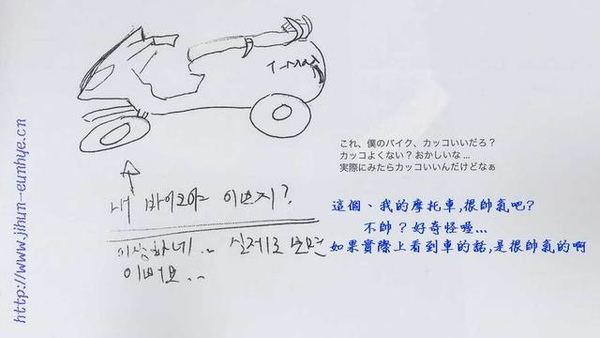 T-Max
これ、僕のバイク、カッコいいだろ？
カッコよくない？おかしいな...
実際にみたらカッコいいんだけどなぁ
내 바이크야 이쁘지?
이상하네.. 실제로 보면
이뻐요..
這個、我的摩托車,很帥氣吧?
不帥？好奇怪喔...
如果實際上看到車的話,是很帥氣的啊
http://www.jihun-eunhye.cn